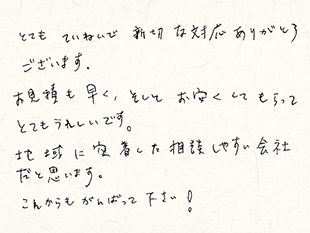 とても ていねいで 新切な対応ありがとう
ございます。
お見積も早く、そして お安くしてもらって
とてもうれしいです。
地域に密着した相談しやすい会社
だと思います。
これからもがんばって下さい!